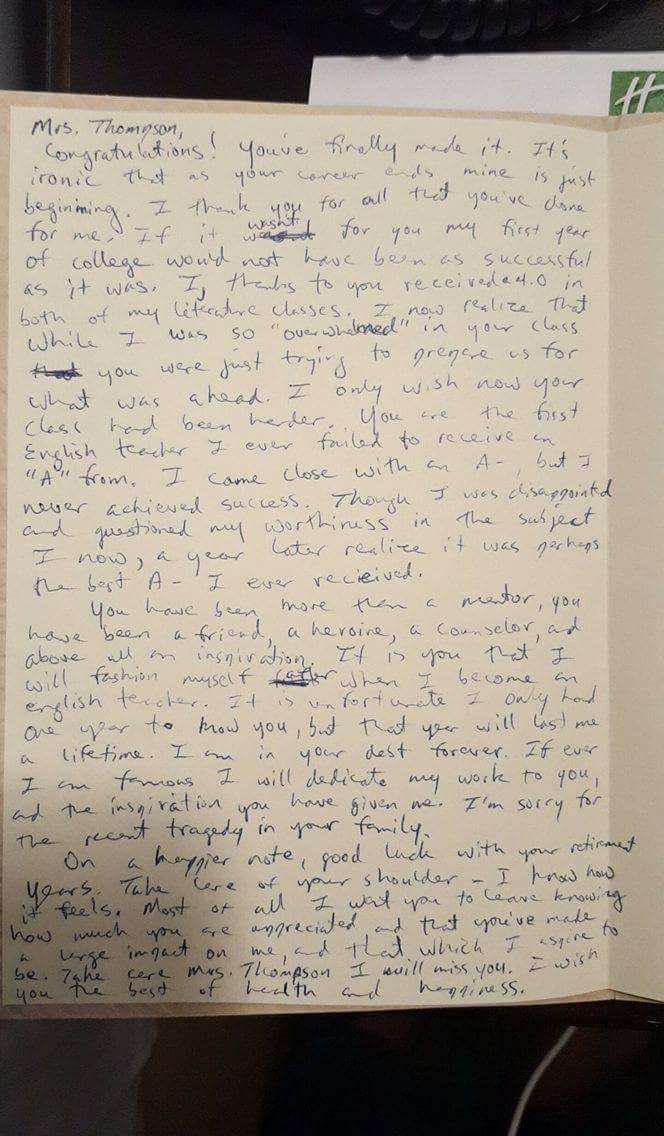 Mrs. Thompson,
Congratulations! You've finally made it. It's
ironic that as your career ends mine is just
beginning. I thank you for all that you've done
for me. If it wasn't for you my first year
of college would not have been as successful
as it was. I, thanks to you received a 4.0 in
both of my literature classes. I now realize that
while I was so "overwhelmed" in your class
you were just trying to prepare us for
what was ahead. I only wish now your
class had been harder. You are the first
English teacher I ever failed to receive an
"A" from. I came close with an A-, but I
never achieved success. Though I was disappointed
and questioned my worthiness in the subject
I now, a year later realize it was perhaps
the best A- I ever recieived.
You have been more than a mentor, you
have been a friend, a heroine, a counselor, and
above all an inspiration. It is you that I
will fashion myself after when I become an
english teacher. It is unfortunate I only had
one year to know you, but that year will last me
a lifetime. I am in your debt forever. If ever
I am famous I will dedicate my work to you,
and the inspiration you have given me. I'm sorry for
the recent tragedy in your family.
On a happier note, good luck with your retirement
years. Take care of your shoulder - I know how
it feels. Most of all I want you to leave knowing
how much you are appreciated and that you've made
a large impact on me, and that which I aspire to
be. Take care Mrs. Thompson I will miss you. I wish
you the best of health and happiness.